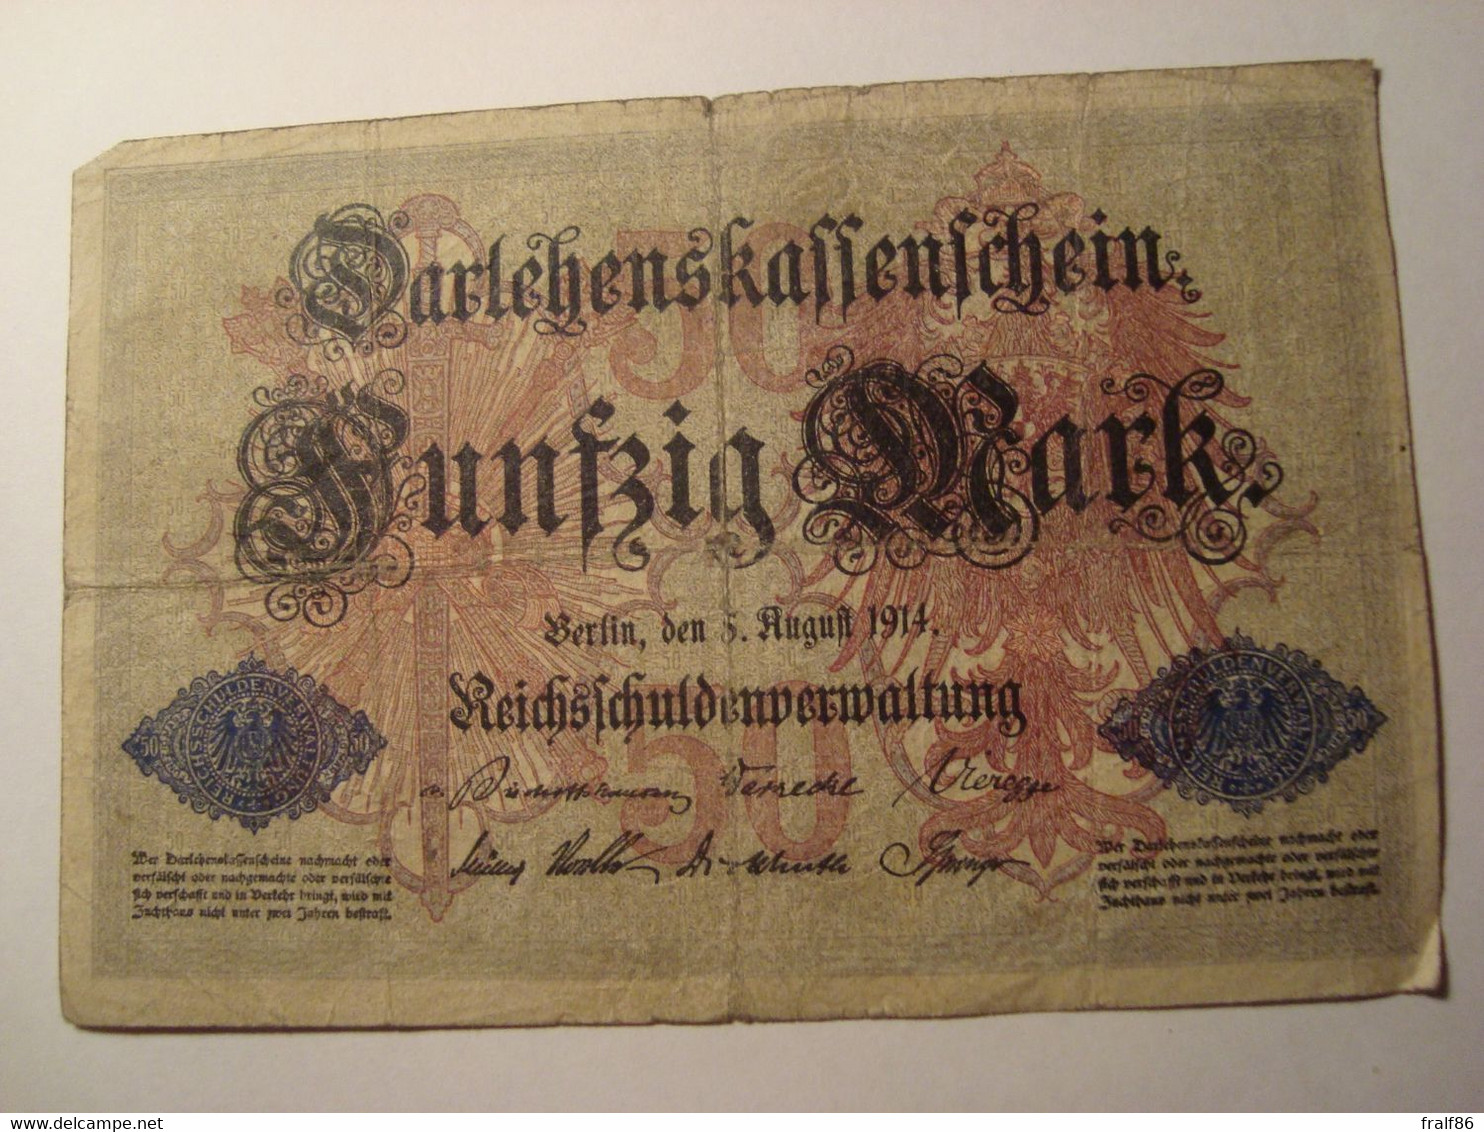 Darlehenskassenschein.
Fünfzig Mark.
Berlin, den 5. August 1914.
Reichsschuldenverwaltung
50 REICHSSCHULDENVERWALTUNG 50
50 REICHSSCHULDENVERWALTUNG 50
50
50
Warnecke Vieregge
Müller Noelle Dickhuth Springer
Wer Darlehenskassenscheine nachmacht oder
verfälscht oder nachgemachte oder verfälschte
sich verschafft und in Verkehr bringt, wird mit
Zuchthaus nicht unter zwei Jahren bestraft.
Wer Darlehenskassenscheine nachmacht oder
verfälscht oder nachgemachte oder verfälschte
sich verschafft und in Verkehr bringt, wird mit
Zuchthaus nicht unter zwei Jahren bestraft.
delcampe.net
fralf86